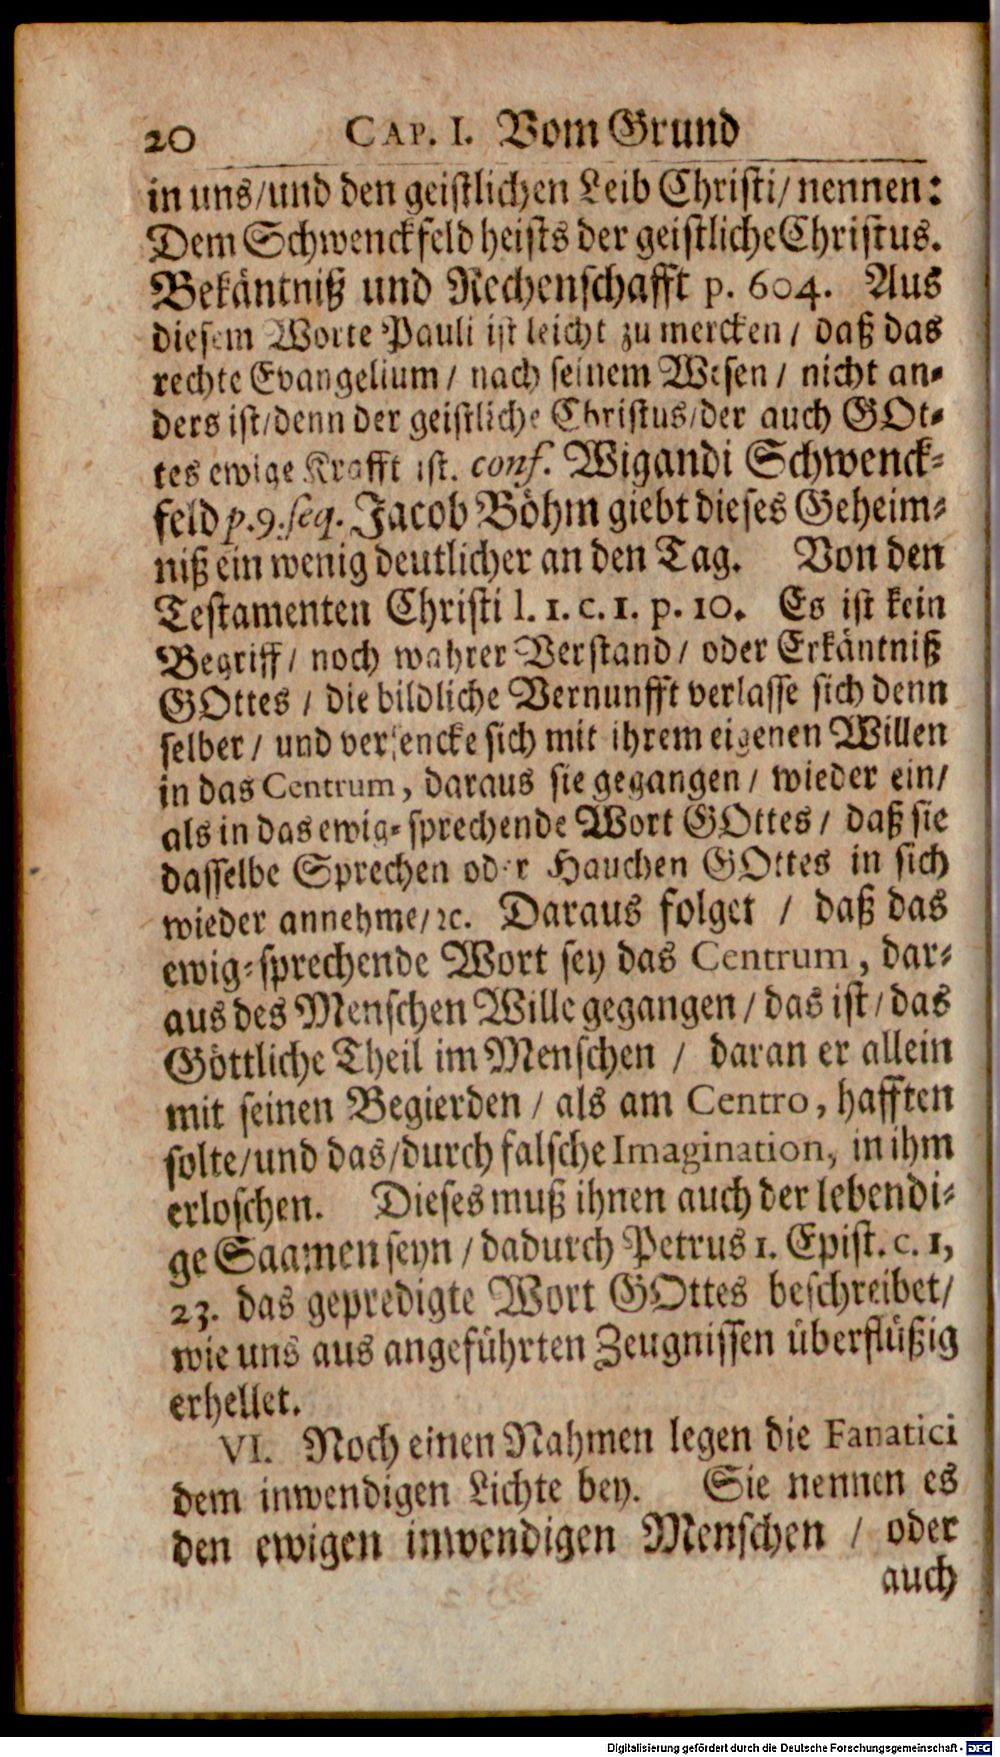 20 CAP. I. Vom Grund
in uns/und den geistlichen Leib Christi/ nennen:
Dem Schwenckfeld heists der geistliche Christus.
Bekäntniß und Rechenschafft p. 604. Aus
diesem Worte Pauli ist leicht zu mercken / daß das
rechte Evangelium / nach seinem Wesen / nicht an-
ders ist/denn der geistliche Christus/der auch GOt-
tes ewige Krafft ist. conf. Wigandi Schwenck-
feld p.9.seq. Jacob Böhm giebt dieses Geheim-
niß ein wenig deutlicher an den Tag. Von den
Testamenten Christi l. 1. c. 1. p. 10. Es ist kein
Begriff / noch wahrer Verstand / oder Erkäntniß
GOttes / die bildliche Vernunfft verlasse sich denn
selber / und versencke sich mit ihrem eigenen Willen
in das Centrum, daraus sie gegangen / wieder ein/
als in das ewig-sprechende Wort GOttes / daß sie
dasselbe Sprechen oder Hauchen GOttes in sich
wieder annehme/ꝛc. Daraus folget / daß das
ewig-sprechende Wort sey das Centrum, dar-
aus des Menschen Wille gegangen / das ist / das
Göttliche Theil im Menschen / daran er allein
mit seinen Begierden / als am Centro, hafften
solte/und das/durch falsche Imagination, in ihm
erloschen. Dieses muß ihnen auch der lebendi-
ge Saamen seyn / dadurch Petrus 1. Epist. c. 1,
23. das gepredigte Wort GOttes beschreibet/
wie uns aus angeführten Zeugnissen überflüßig
erhellet.
VI. Noch einen Nahmen legen die Fanatici
dem inwendigen Lichte bey. Sie nennen es
den ewigen inwendigen Menschen / oder
auch
Digitalisierung gefördert durch die Deutsche Forschungsgemeinschaft - DFG